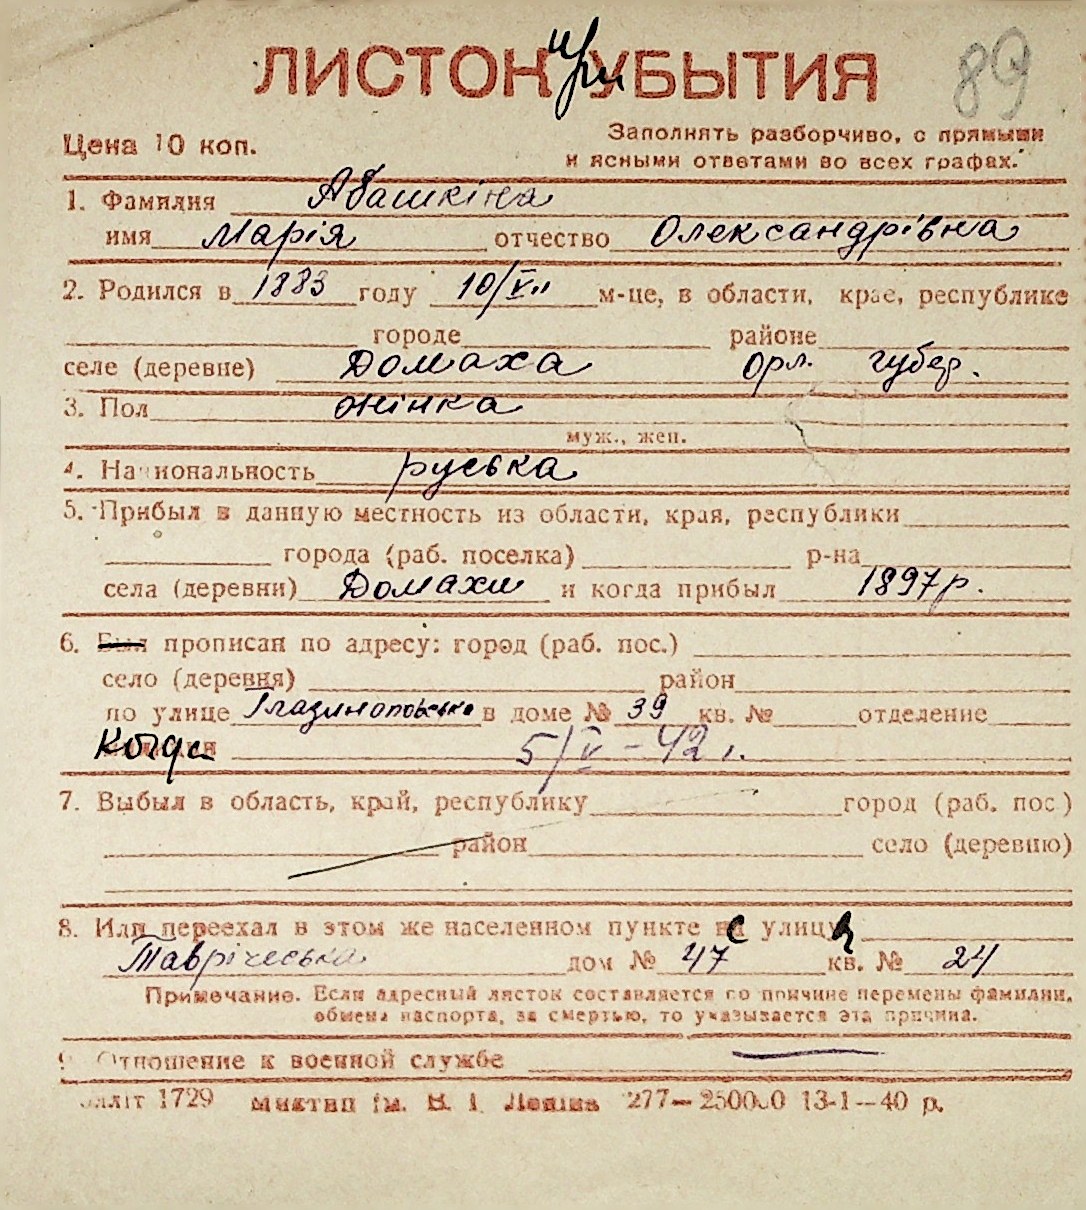 ЛИСТОК при УБЫТИЯ 89
Цена 10 коп. Заполнять разборчиво, с прямыми
и ясными ответами во всех графах.
1. Фамилия Абашкіна
имя Марія отчество Олександрівна
2. Родился в 1883 году 10/VII м-це, в области, крае, республике
городе районе
селе (деревне) Домаха орл. губер.
3. Пол жінка
муж., жен.
4. Национальность руська
5. Прибыл в данную местность из области, края, республики
города (раб. поселка) р-на
села (деревни) Домахи и когда прибыл 1897 р.
6. Был прописан по адресу: город (раб. пос.)
село (деревня) район
по улице в доме № 39 кв. № отделение
Когда 5/V-42 г.
7. Выбыл в область, край, республику город (раб. пос.)
район село (деревню)
8. Или переехал в этом же населенном пункте с улицы
Таврічеська дом № 47 кв. № 24
Примечание. Если адресный листок составляется по причине перемены фамилии,
обмена паспорта, за смертью, то указывается эта причина.
9. Отношение к военной службе
1729 ім. В. І. Леніна 277—250000 13-1—40 р.